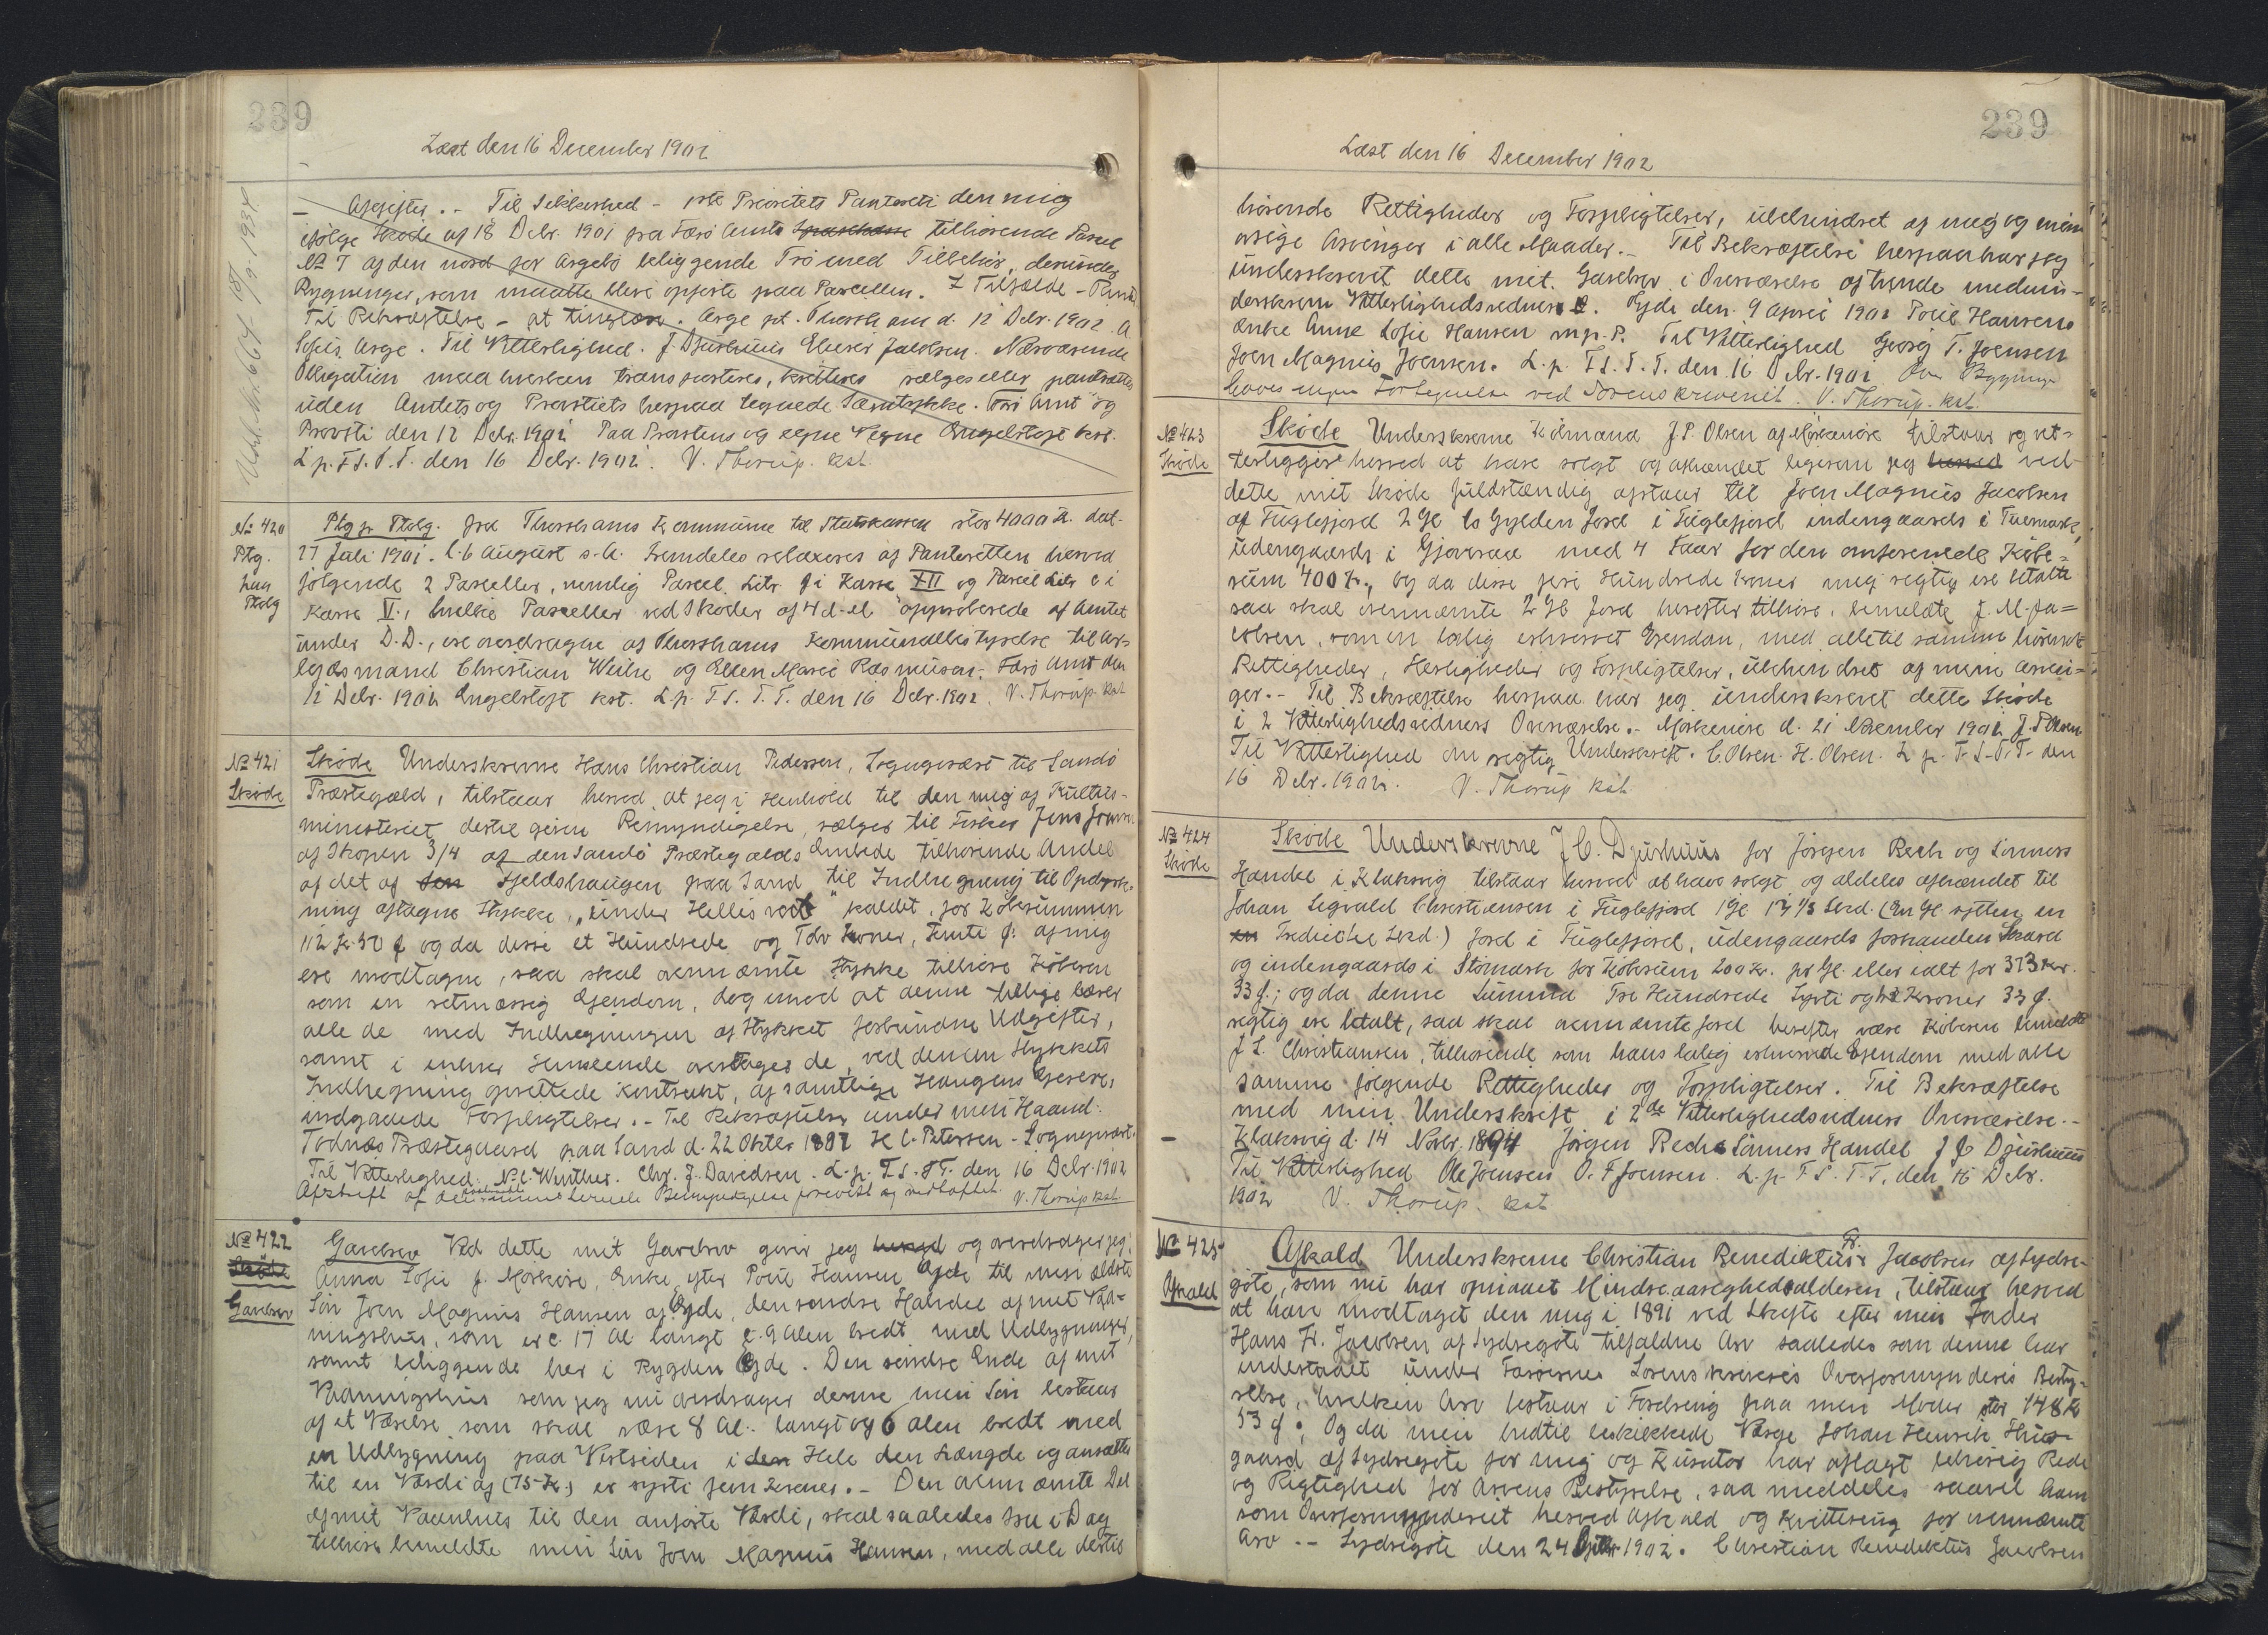 239
Læst den 16 December 1902
Afgifter. - Til Sikkerhed - 1ste Prioritets Panteret i den mig
ifølge Skøde af 18 Debr. 1901 fra Færø Amts Sparekasse tilhørende Parcel
№ 7 af den nord for Argebø beliggende Trø med Tilbehør, derunder
Bygninger, som maatte blive opførte paa Parcellen. I Tilfælde - Pant
Til Bekræftelse - at tinglæse. Arge pt. Thorshavn d. 12 Debr. 1902. A
Arge. Til Vitterlighed. J Djurhuus Elieser Jacobsen. Nærværende
Obligation maa hverken transporteres, kvitteres sælges eller pantsættes
uden Amtets og Provstiets herpaa tegnede Samtykke. Færø Amt og
Provsti den 12 Debr. 1902 Paa Provstens og egne Vegne Engelstoft kst.
L. p. F. S. T. T. den 16 Debr. 1902. V. Thorup. kst.
№ 420
Ptg.
paa
Ptobg
Ptg p. Ptobg. fra Thorshavns Kommune til Statskassen stor 4000 Kr. dat.
27 Juli 1901. l. 6 August s. A. Fremdeles relaxeres af Panteretten herved
følgende 2 Parceller, nemlig Parcel Litr f i Karre XII og Parcel Litr c i
Karre V., hvilke Parceller ved Skøder af 4 d. el approberede af Amtet
under D. D., ere overdragne af Thorshavns Kommunalbestyrelse til Ar-
bejdsmand Christian Weihe og Ellen Marie Rasmussen. Færø Amt den
12 Debr. 1902 Engelstoft kst. L. p. F. S. T. T. den 16 Debr. 1902. V. Thorup kst
№ 421
Skøde
Skøde Underskrevne Hans Christian Petersen, Sognepræst til Sandø
Præstegæld, tilstaar herved, at jeg i Henhold til den mig af Kultus-
ministeriet dertil given Bemyndigelse, sælger til Fisker Jens
af Skopen 3/4 af den Sandø Præstegælds Embede tilhørende Andel
af det af den Fjeldshaugen paa Sand til Indhegning til Opdyrk-
ning aftagne Stykke, "under Hellis vod" kaldet, for Købesummen
112 Kr. 50 Ø og da disse et Hundrede og Tolv Kroner, Femti Ø. af mig
ere modtagne, saa skal ovennævnte Stykke tilhøre Køberen
som en retmæssig Ejendom, dog imod at denne tillige bærer
alle de med Indhegningen af Stykket forbundne Udgifter,
samt i enhver Henseende overtager de, ved den om Stykkets
Indhegning oprettede Kontrakt, af samtlige Haugens Ejere,
indgaaede Forpligtelser. - Til Bekræftelse under min Haand.
Todnæs Præstegaard paa Sand d. 22 Oktbr 1887 H C. Petersen - Sognepræst.
Til Vitterlighed. N. C. Winther. Chr. J. Davidsen. L. p. F. S. T T. den 16 Debr. 1902
Afskrift af den ministerielle Bemyndigelse forevist og vedhæftet. V. Thorup kst.
№ 422
Skøde
Gavebrev
Gavebrev Ved dette mit Gavebrev giver jeg herved og overdrager jeg,
Anna Sofie f. Mørkøre, Enke efter Poul Hansen Øjde til min ældste
Søn Joen Magnus Hansen af Øjde, den søndre Halvdel af mit Vaa-
ningshus, som er c. 17 Al. langt c. 9 Alen bredt med Udbygninger,
samt beliggende her i Bygden Øjde. Den søndre Ende af mit
Vaaningshus som jeg nu overdrager denne min Søn bestaar
af et Værelse, som skal være 8 Al. langt og 6 alen bredt med
en Udbygning paa Vestsiden i den Hele den Længde og ansættes
til en Værdi af (75 Kr.) er sytti fem Kroner. - Den ovennævnte Del
af mit Vaanhus til den anførte Værdi, skal saaledes fra i Dag
tilhøre bemeldte min Søn Joen Magnus Hansen, med alle dertil
239
Læst den 16 December 1902
hørende Rettigheder og Forpligtelser, ubehindret af mig og mine
øvrige Arvinger i alle Maader. - Til Bekræftelse herpaa har jeg
underskrevet dette mit Gavebrev i Overværelse af hende medun-
derskrevne Vitterlighedsvidner. Øjde den 9 April 1902 Poul Hansens
Enke Anne Sofie Hansen m. p. P. Til Vitterlighed Georg T. Joensen
Joen Magnus Joensen. L. p. F. S. T. T. den 16 Debr. 1902 Om Bygninger
haves ingen Fortegnelse ved Sorenskriveriet. V. Thorup. kst.
№ 423
Skøde
Skøde Underskrevne Købmand J. P. Olsen af Mørkenøre tilstaar og vit-
terliggør herved at have solgt og afhændet ligesom jeg herved ved
dette mit Skøde fuldstændig afstaar til Joen Magnus Jacobsen
af Fuglefjord 2 Gl. to Gylden Jord i Fuglefjord indengaards i Tuemark,
udengaards i Gjovraa med 4 Faar for den omforenede Købe-
sum 400 Kr., og da disse fire Hundrede Kroner mig rigtig ere betalte
saa skal ovennævnte 2 Gl. Jord herefter tilhøre, bemeldte J. M. Ja=
cobsen, som en lovlig erhvervet Ejendom, med alle til samme hørende
Rettigheder, Herligheder og Forpligtelser, ubehindret af mine Arvin-
ger. - Til Bekræftelse herpaa har jeg underskrevet dette Skøde
i 2 Vitterlighedsvidners Overværelse. - Mørkenøre d. 21 November 1902 J. P. Olsen
Til Vitterlighed om rigtig Underskrift. C. Olsen. H. Olsen. L p. F. S. T. T. den
16 Debr. 1902. V. Thorup kst.
№ 424
Skøde
Skøde Underskrevne J. C. Djurhuus for Jørgen Bech og Sønners
Handel i Klaksvig tilstaar herved at have solgt og aldeles afhændet til
Johan Sigvald Christiansen i Fuglefjord 1 Gl 17 1/3 Skd. (En Gl. sytten en
en Trediedel Skd.) Jord i Fuglefjord, udengaards forhanden Skard
og indengaards i Stomark for Købesum 200 Kr. pr Gl. eller ialt for 373 Kr.
33 Ø.; og da denne Summa Tre Hundrede Sytti og tre Kroner 33 Ø.
rigtig ere betalt, saa skal ovennævnte Jord herefter være Køberen bemeldte
J S. Christiansen, tilhørende som hans lovlig erhvervede Ejendom med alle
samme følgende Rettigheder og Forpligtelser. Til Bekræftelse
med min Underskrift i 2de Vitterlighedsvidners Overværelse. -
Klaksvig d. 14 Novbr. 1894 Jørgen Bech & Sønners Handel J C Djurhuus
Til Vitterlighed Ole Joensen O. F Joensen. L. p. F. S. T. T. den 16 Debr.
1902 V. Thorup. kst
№ 425
Afkald
Afkald Underskrevne Christian Benediktus Fr. Jacobsen af Sydre-
gøte, som nu har opnaaet Mindreaarighedsalderen, tilstaar herved
at have modtaget den mig i 1891 ved Skifte efter min Fader
Hans Fr. Jacobsen af Sydregøte tilfaldne Arv saaledes som denne har
indestaaet under Færøernes Sorenskriveries Overformynderis Besty-
relse, hvilken Arv bestaar i Fordring paa min Moder stor 148 Kr
53 Ø; Og da min hidtil beskikkede Værge Johan Henrik Hus-
gaard af Sydregøte for mig og Kurator har aflagt behørig Rede
og Rigtighed for Arvens Bestyrelse, saa meddeles saavel ham
som Overformynderiet herved Afkald og Kvittering for ovennævnte
Arv. - Sydregøte den 24 1902. Christian Benediktus Jacobsen